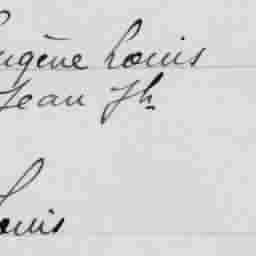 Eugène Louis
Jean Jh
Louis